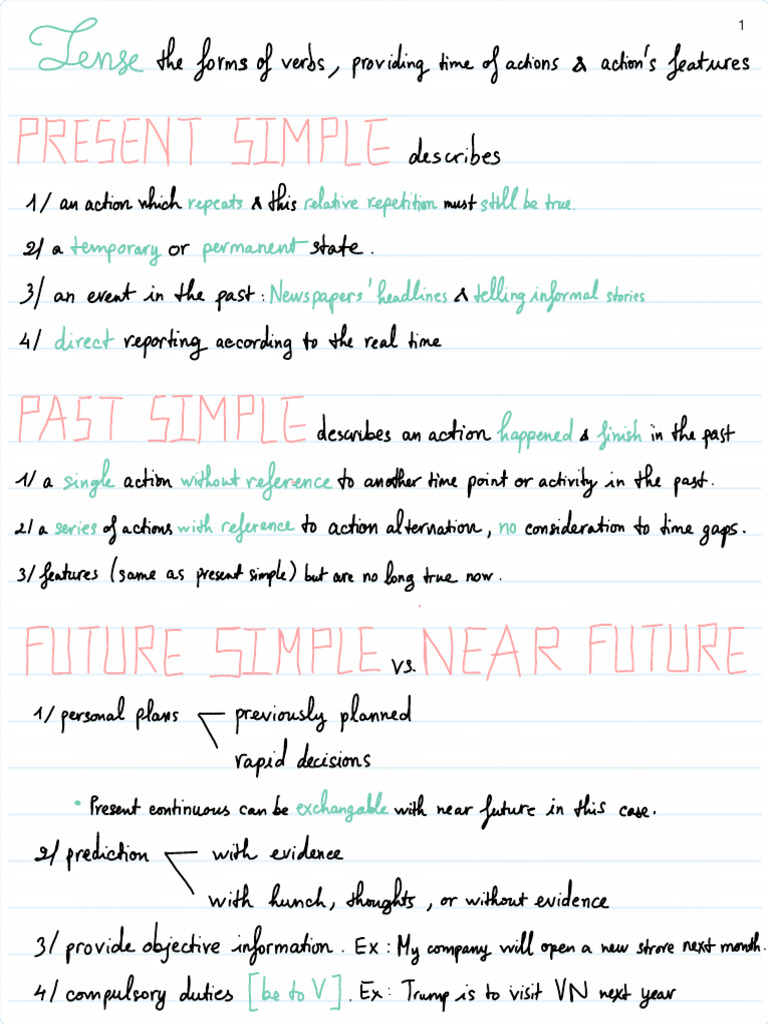 1
Tense the forms of verbs, providing time of actions & action's features
PRESENT SIMPLE describes
1/ an action which repeats & this relative repetition must still be true.
2/ a temporary or permanent state.
3/ an event in the past: Newspapers' headlines & telling informal stories
4/ direct reporting according to the real time
PAST SIMPLE describes an action happened & finish in the past
1/ a single action without reference to another time point or activity in the past.
2/ a series of actions with reference to action alternation, no consideration to time gaps.
3/ features (same as present simple) but are no long true now.
FUTURE SIMPLE vs. NEAR FUTURE
1/ personal plans previously planned
rapid decisions
• Present continuous can be exchangable with near future in this case.
2/ prediction with evidence
with hunch, thoughts, or without evidence
3/ provide objective information. Ex: My company will open a new strore next month.
4/ compulsory duties [be to V]. Ex: Trump is to visit VN next year